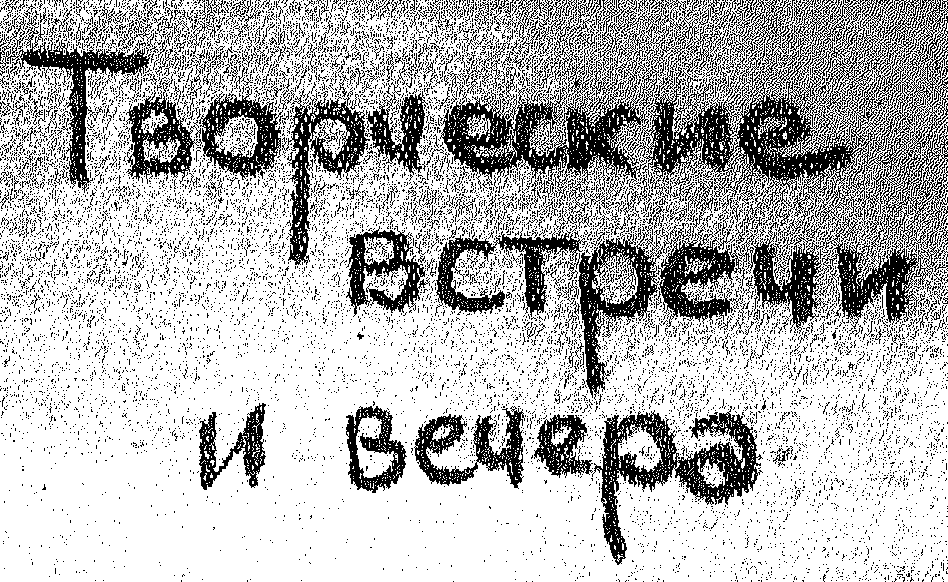 Творческие
встречи
и вечера